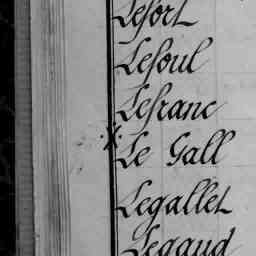 Lefort
Lefoul
Lefranc
X Le Gall
Legallet
Legaud